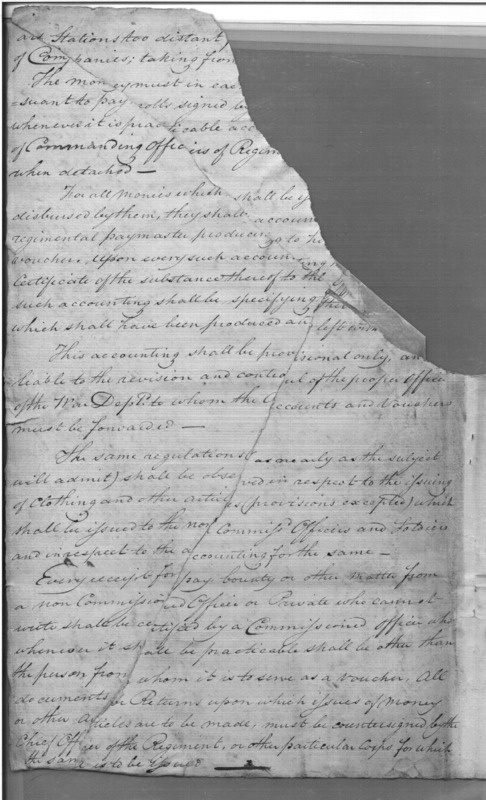 are Stations too distant
of Companies; taking from
The money must in eac
=suant to pay-rolls signed by
whenever it is practicable acc
of Commanding Officers of Regim
when detached —
For all monies which shall be
disbursed by them, they shall account
regimental paymaster producing to h
Vouchers. Upon every such accoun
Certificate of the substance thereof to the
such accounting shall be, specifying the
which shall have been produced and left with
This accounting shall be provisional only, and
liable to the revision and controul of the proper Officer
of the War Dept. to whom the Accounts and Vouchers
must be forwarded —
The same regulations (as nearly as the subject
will admit) shall be observed in respect to the issuing
of Clothing and other articles (provisions excepted) which
shall be issued to the non Commissd. Officers and Soldiers
and in respect to the accounting for the same —
Every receipt for pay bounty or other matter from
a non Commissioned Officer or Private who cannot
write shall be certified by a Commissioned Officer who
whenever it shall be practicable shall be other than
the person from whom it is to serve as a voucher. All
documents or Returns upon which issues of money
or other Articles are to be made, must be countersigned by the
Chief Officer of the Regiment, or other particular Corps for which
the same is to be issued.